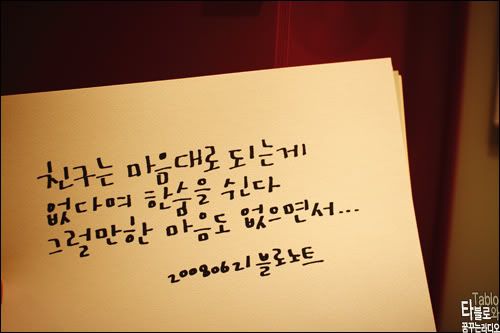 친구는 마음대로 되는게
없다며 한숨을 쉰다
그럴만한 마음도 없으면서...
20080621 블로노트
Tablo
타블로와
꿈꾸는라디오